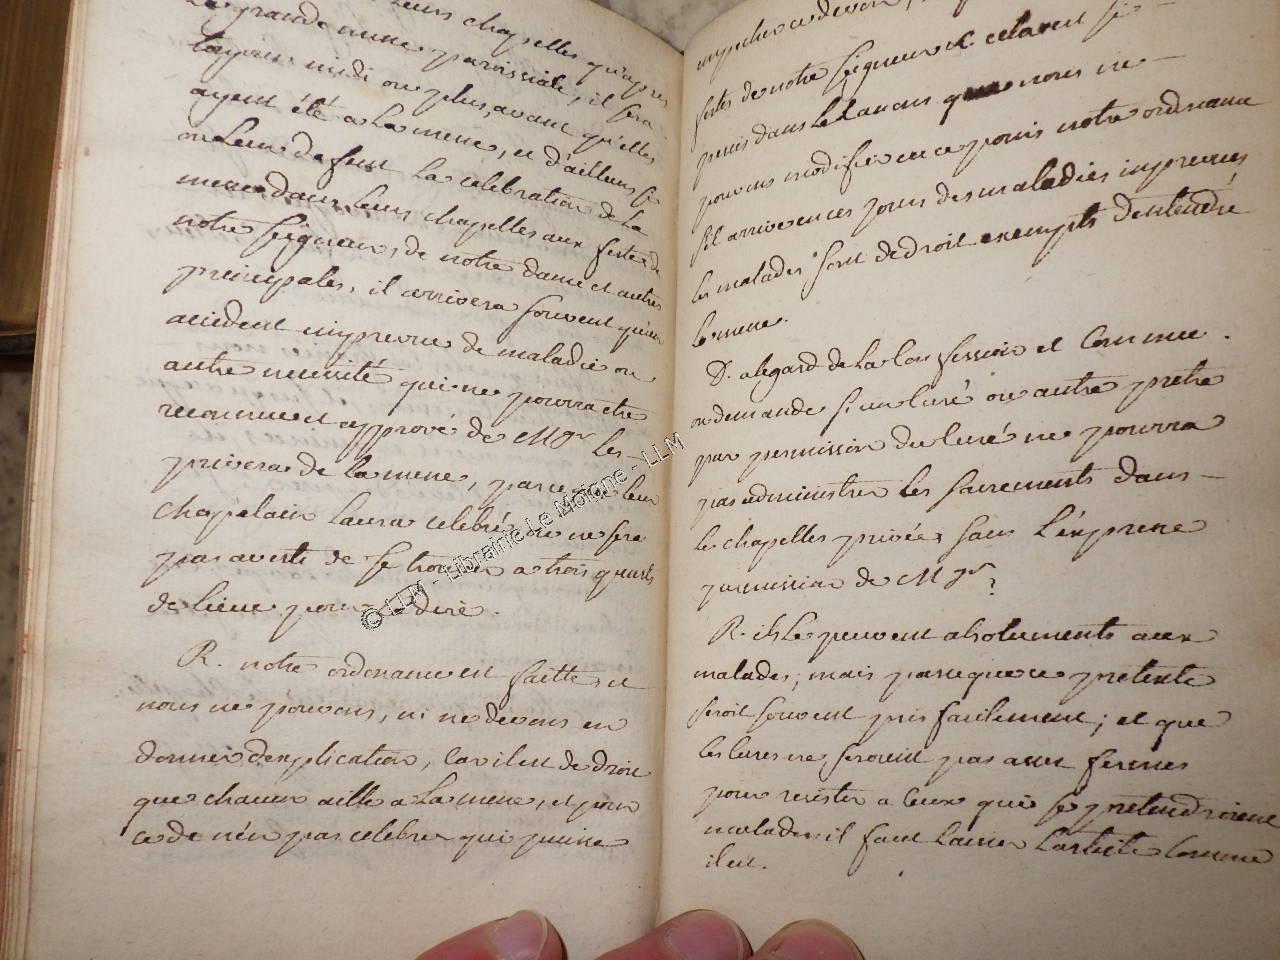 leurs chapelles qu'apres
La grande messe paroissiale, il sera
toujours midi ou plus, avant qu'elles
ayent été a La messe, et d'ailleurs si
on Leur defent La celebration de La
messe dans leurs chapelles aux festes de
notre Seigneur, de notre dame et autres
principales, il arrivera souvent qu'un
accident impreveu de maladie ou
autre necessité qui ne pourra etre
reconnue et apprové de Mgr les
privera de la messe, parceque leur
chapelain Laura celebré ou ne sera
pas averti de se trouver a trois quarts
de lieue pour La dire.
R. notre ordonnance est faitte, et
nous ne pouvons, ni ne devons en
donner dexplication, Car il est de droit
que chacun aille a La messe, et pour
ce de n'en pas celebrer qui puisse
empecher ce devoir,
festes de notre Seigneur &c. cela est si
precis dans Le que nous ne
pouvons modifier en ce point notre ordonnance
s'il arrive en ces jours des maladies impreveues
les malades sont de droit exempts D'entendre
la messe.
D. alegard de La Confession et Commu.
on demande si un Curé ou autre pretre
par permission du Curé ne pourra
pas administrer les sacrements dans
les chapelles privées sans L'expresse
permission de Mgr?
R. ils Le peuvent absolument aux
malades; mais parceque ce pretexte
seroit souvent pris facilement; et que
les Cures ne seroient pas assez fermes
pour resister a Ceux qui se pretendroient
malades il faut Laisser Larticle Comme
il est.
© LLM - Librairie Le Moigne - LLM